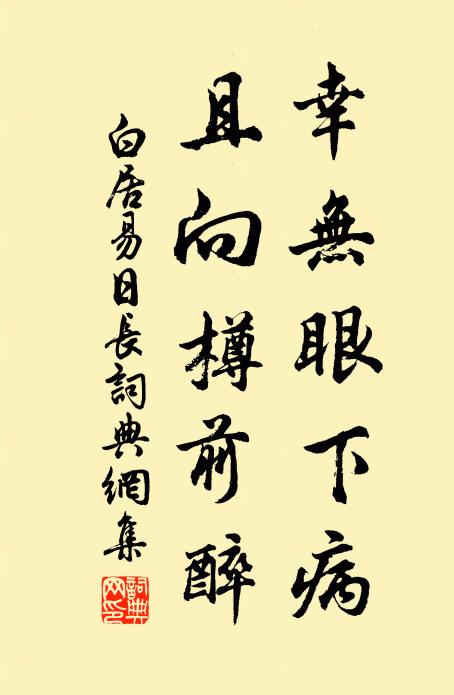 幸無眼下病
且向樽前醉
白居易日長詞典網集
詞典
网印